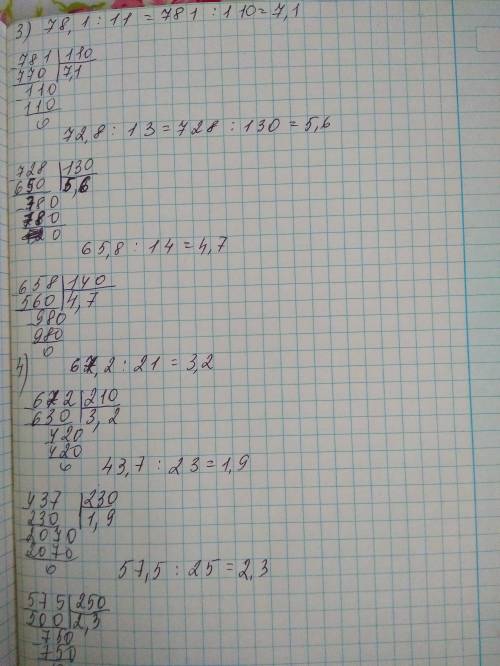 3) 78,1 : 11 = 781 : 110 = 7,1
781 | 110
770 | 7,1
110
110
0
72,8 : 13 = 728 : 130 = 5,6
728 | 130
650 | 5,6
780
780
0
65,8 : 14 = 4,7
658 | 140
560 | 4,7
980
980
0
4) 67,2 : 21 = 3,2
672 | 210
630 | 3,2
420
420
0
43,7 : 23 = 1,9
437 | 230
230 | 1,9
2070
2070
0
57,5 : 25 = 2,3
575 | 250
500 | 2,3
750
750